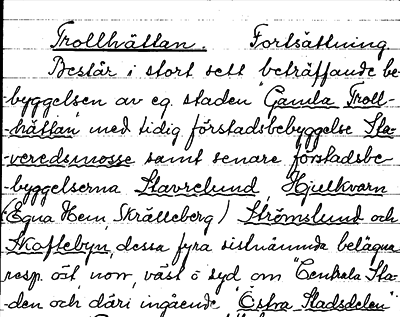 Trollhättan. Fortsättning
Består i stort sett beträffande be-
byggelsen av eg. staden "Gamla Troll-
hättan" med tidig förstadsbebyggelse Sta-
veredsmosse samt senare förstadsbe-
byggelserna Stavrelund, Hjulkvarn
(Egna Hem, Skrälleberg) Strömslund och
Skoftebyn, dessa fyra sistnämnda belägna
resp. öst, norr, väst o syd om "Centrala Sta-
den och däri ingående "Östra Stadsdelen"